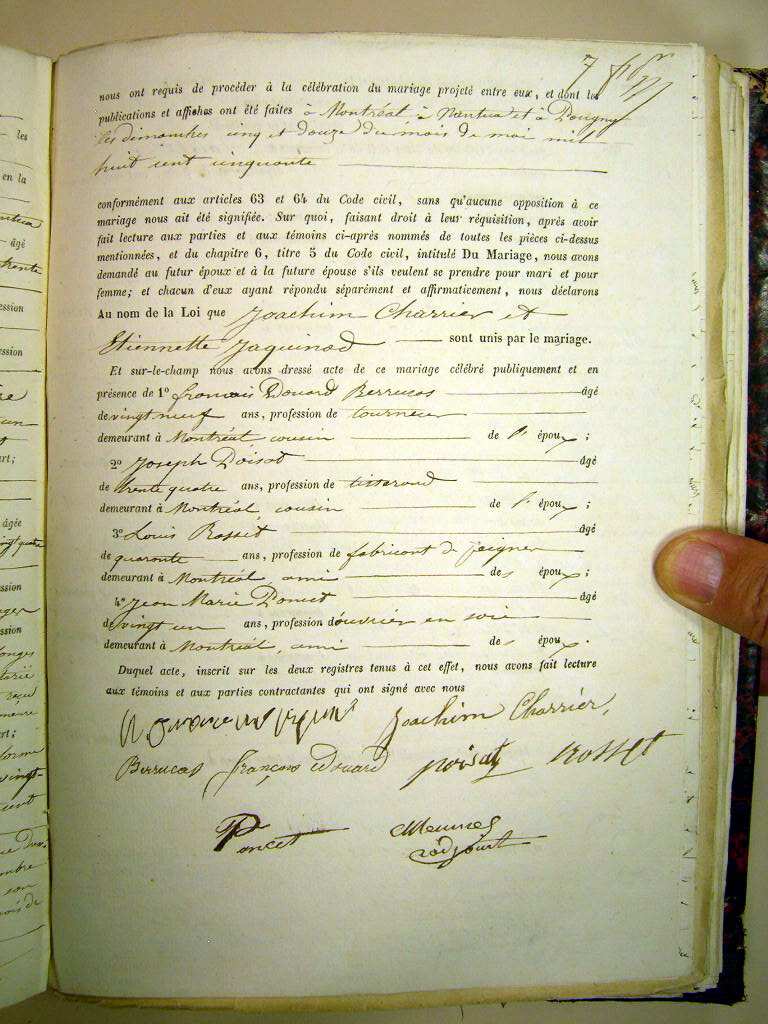 7
nous ont requis de procéder à la célébration du mariage projeté entre eux, et dont les
publications et affiches ont été faites à Montréal, à Nantua et à Pougny
les dimanches cinq et douze du mois de mai mil
huit cent cinquante
conformément aux articles 63 et 64 du Code civil, sans qu'aucune opposition à ce
mariage nous ait été signifiée. Sur quoi, faisant droit à leur réquisition, après avoir
fait lecture aux parties et aux témoins ci-après nommés de toutes les pièces ci-dessus
mentionnées, et du chapitre 6, titre 5 du Code civil, intitulé Du Mariage, nous avons
demandé au futur époux et à la future épouse s'ils veulent se prendre pour mari et pour
femme; et chacun d'eux ayant répondu séparément et affirmaticement, nous déclarons
Au nom de la Loi que Joachim Charrier et
Etiennette Jaquinod sont unis par le mariage.
Et sur-le-champ nous avons dressé acte de ce mariage célébré publiquement et en
présence de 1º françois Edouard Berrucas âgé
de vingt neuf ans, profession de tourneur
demeurant à Montréal cousin de l' époux;
2º Joseph Poisat âgé
de trente quatre ans, profession de tisserand
demeurant à Montréal, cousin de l' époux;
3º Louis Rosset âgé
de quarante ans, profession de fabricant de peignes
demeurant à Montréal, ami des époux;
4º Jean Marie Poncet âgé
de vingt un ans, profession d'ouvrier en soie
demeurant à Montréal, ami des époux.
Duquel acte, inscrit sur les deux registres tenus à cet effet, nous avons fait lecture
aux témoins et aux parties contractantes qui ont signé avec nous
Joachim Charrier
Berrucas françois edouard poisat rosset
Poncet Meunier
adjoint